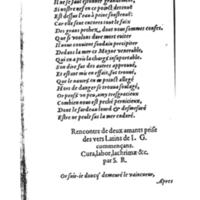 Il ne se faut estonner grandement,
Si nostre nef en ce point descend
Est dessus l'eau à peine soustenue:
Car elle sent encores tout le faix
Des grans pechez, dont nous sommes confets,
Que si voulons dure mort eviter
Il nous convient soudain precipiter
Dedans la mer ce Moyne venerable,
Qui en a pris la charge insuportable,
Son dire fut des autres approuvé,
Et estant mis en effait, fut trouvé,
Le moyne estant en la mer plongé
Et hors de danger se trouva soulagé,
Or pensez un peu, amy tresgracieux
Combien nous est peché pernicieux,
Dont le fardeau lourd & desmesuré
Estre ne peut sus la mer enduré.
Rencontre de deux amants prise
des vers Latins de L. G.
commençans.
Cura, labor, lachrimæ &c.
par S. R.
Or sois-ie doncq' demeuré le vaincueur,
Apres